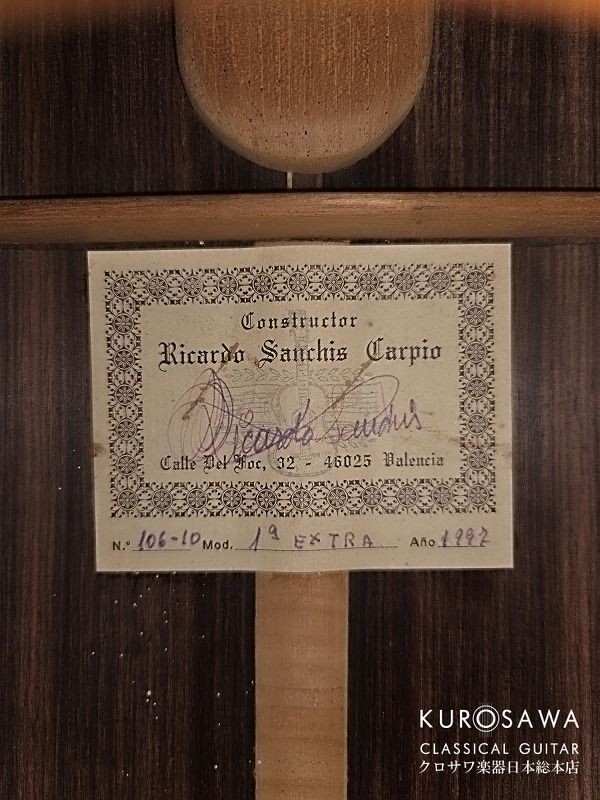 Constructor
Ricardo Sanchis Carpio
Ricardo Sanchis
Calle Del Foc, 32 - 46025 Valencia
N.º 106-10 Mod. 1ª EXTRA Año 1997
KUROSAWA
CLASSICAL GUITAR
クロサワ楽器日本総本店